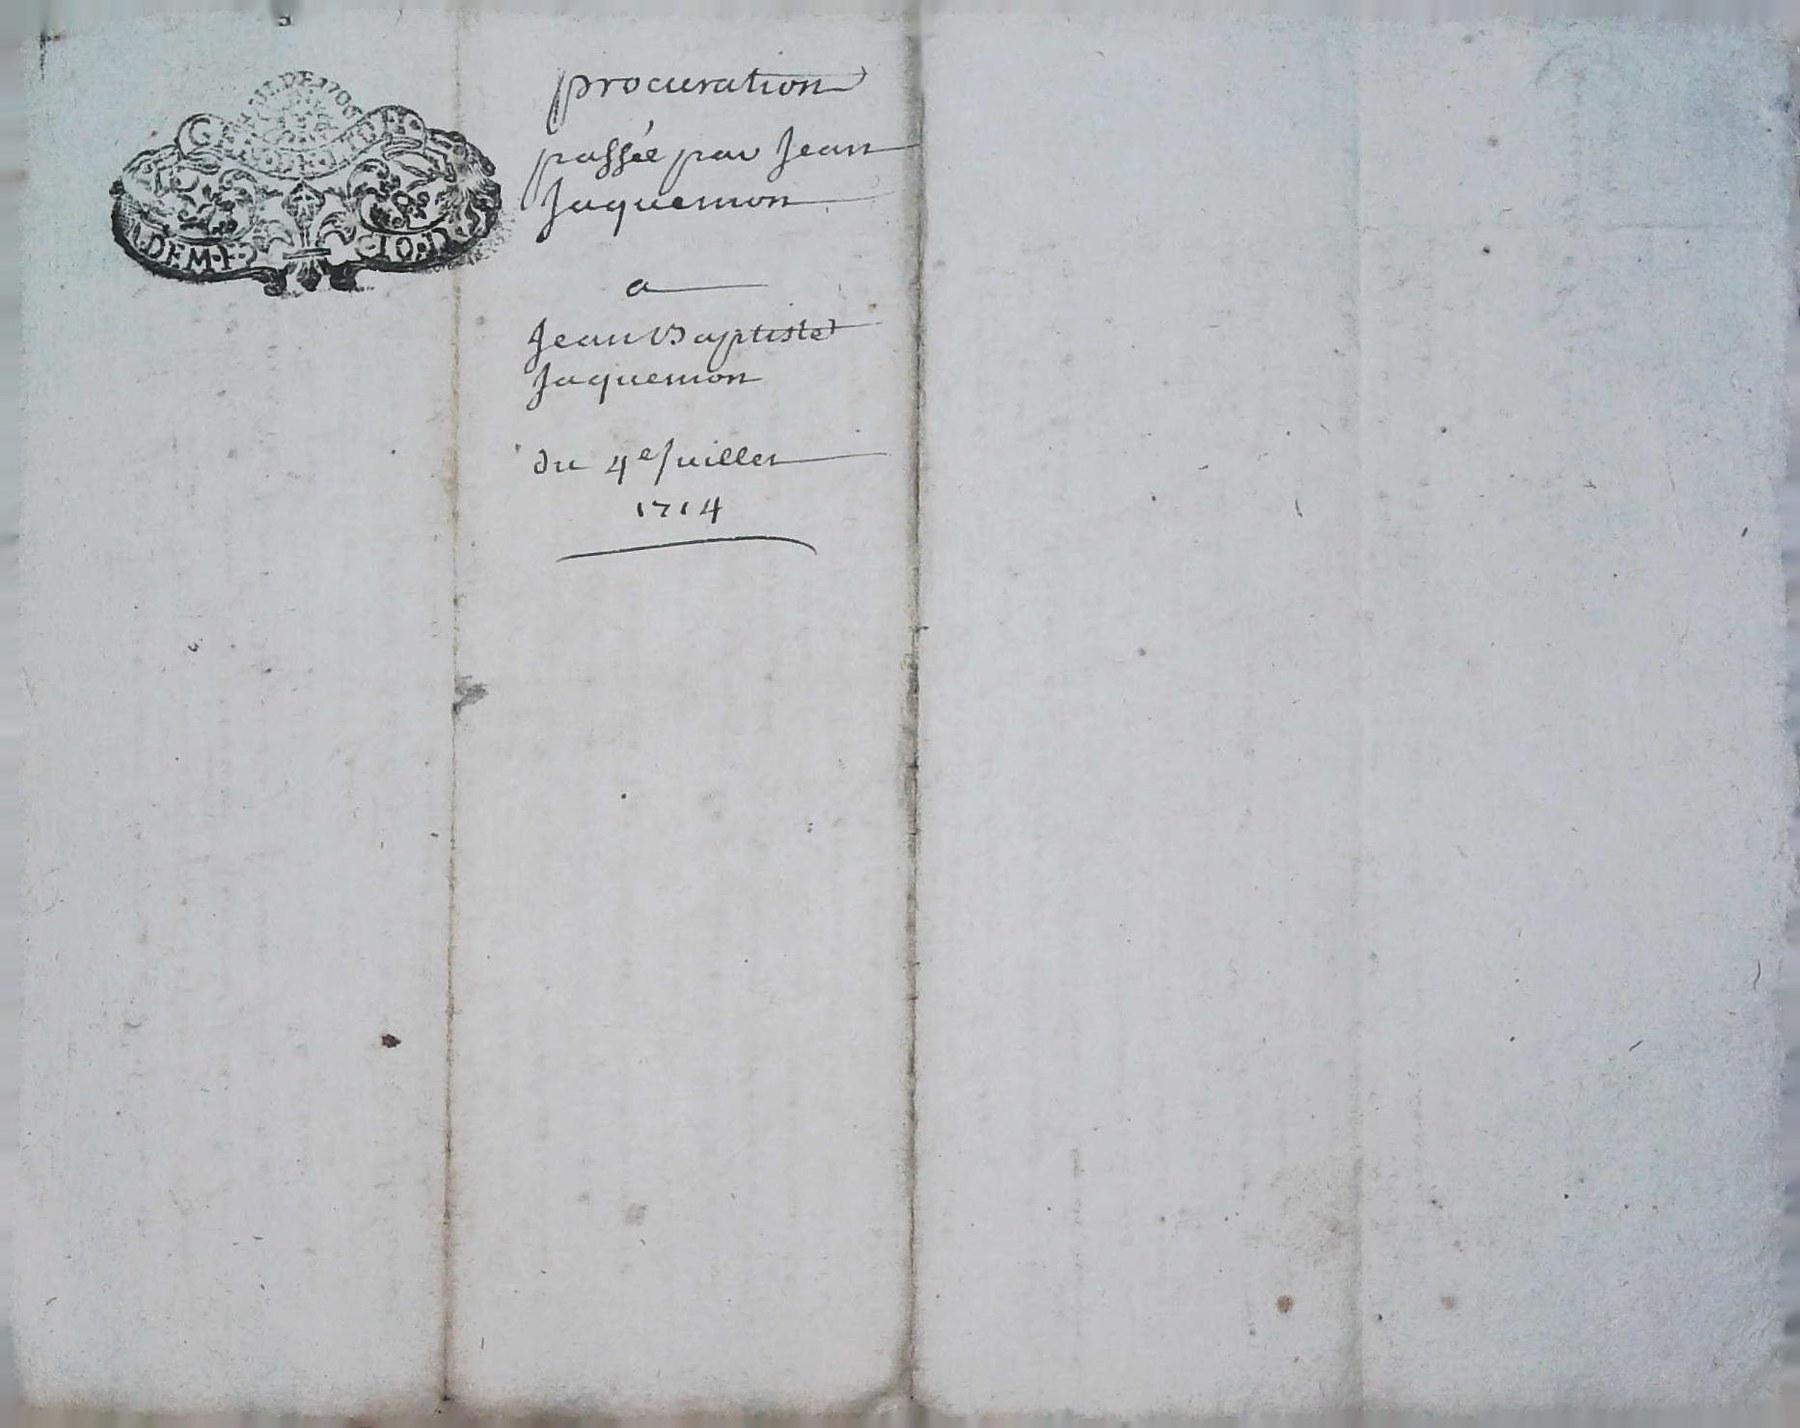 procuration
passée par Jean
Jaquemon
a
Jean Baptiste
Jaquemon
du 4e Juillet
1714